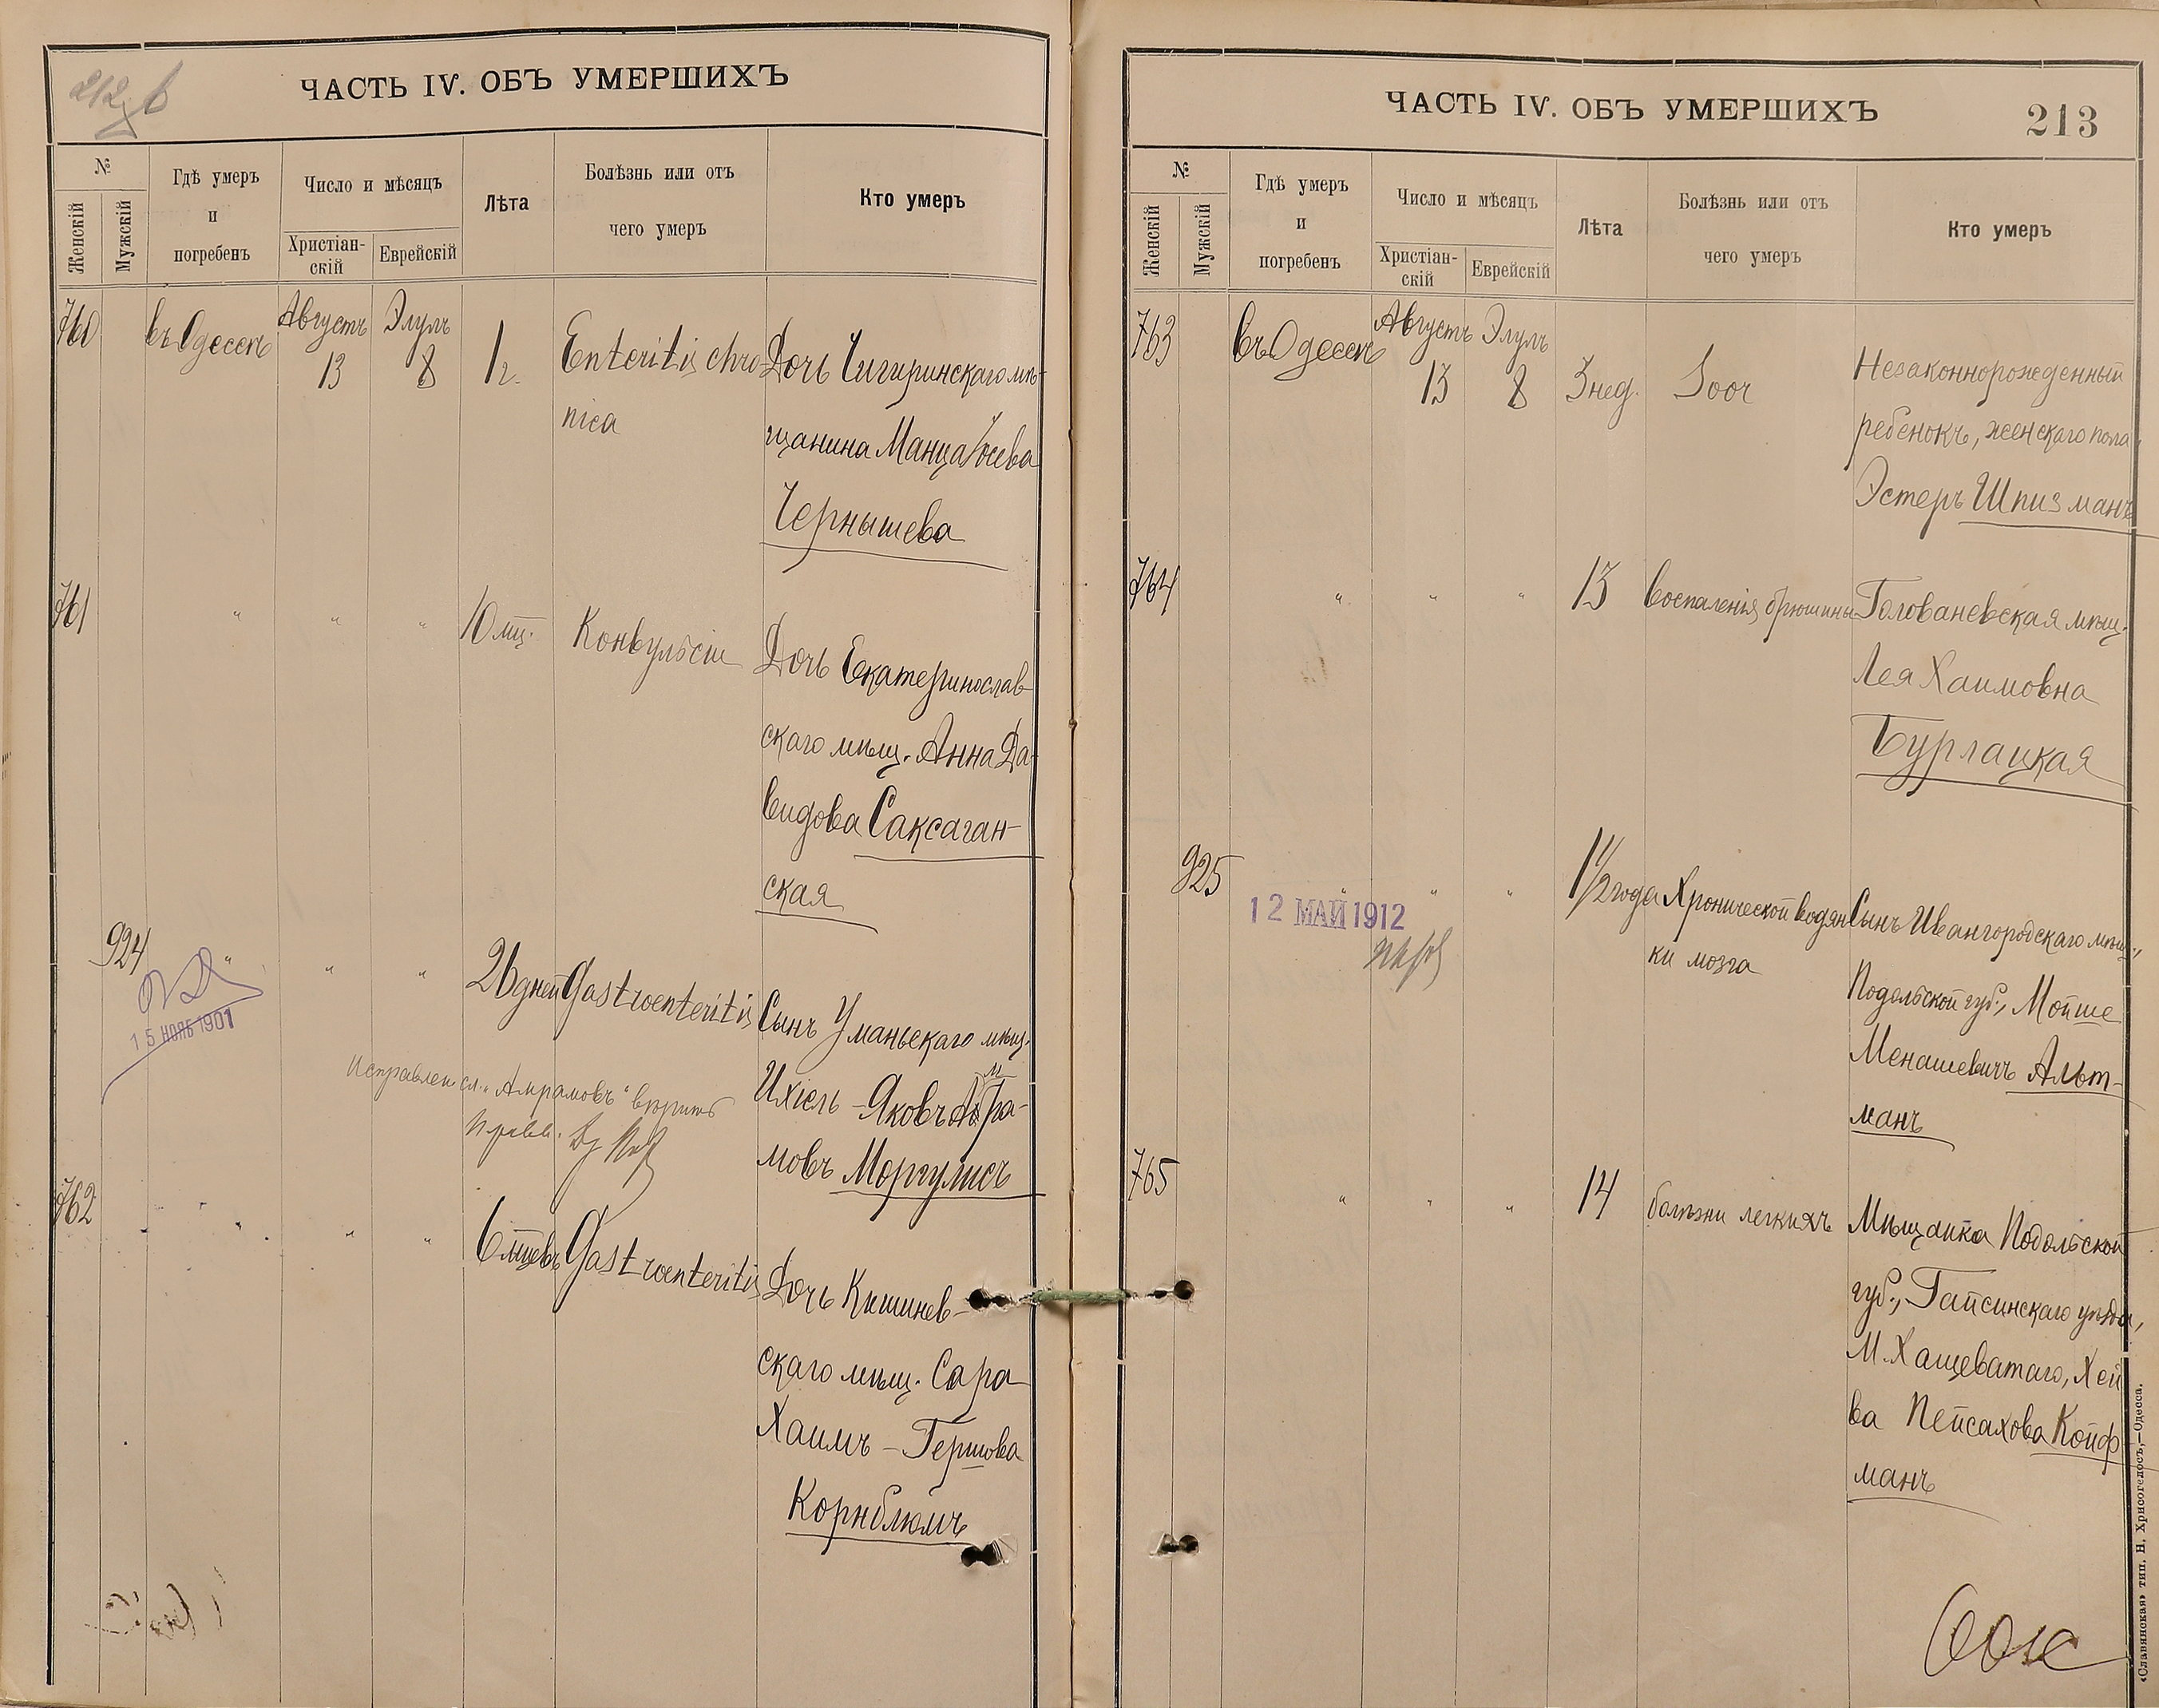 ЧАСТЬ IV. ОБЪ УМЕРШИХЪ
№
Женскій
Мужскій
Гдѣ умеръ
и
погребенъ
Число и мѣсяцъ
Христіан-
скій
Еврейскій
Лѣта
Болѣзнь или отъ
чего умеръ
Кто умеръ
760
въ Одессѣ
Августъ
13
Элулъ
8
1 г.
Enteritis chro-
nica
Дочь Чигиринскаго мѣ-
щанина Манца Іосева
Чернышева
761
" " "
10 мц.
Конвульсіи
Дочь Екатеринослав-
скаго мѣщ. Анна Да-
видова Саксаган-
ская
924
" " "
15 НОЯБ 1901
26 дней
Gastroenteritis
Сынъ Уманьскаго мѣщ.
Ихіель-Яковъ Амра-
мовъ Моргулисъ
Исправлен. сл. "Амрамовъ" вѣрить
762
" " "
6 мцевъ
Gastroenteritis
Дочь Кишинев-
скаго мѣщ. Сара
Хаимъ-Гершова
Корнблюмъ
ЧАСТЬ IV. ОБЪ УМЕРШИХЪ
213
№
Женскій
Мужскій
Гдѣ умеръ
и
погребенъ
Число и мѣсяцъ
Христіан-
скій
Еврейскій
Лѣта
Болѣзнь или отъ
чего умеръ
Кто умеръ
763
въ Одессѣ
Августъ
13
Элулъ
8
3 нед.
Soor
Незаконнорожденный
ребенокъ, женскаго пола
Эстеръ Шпизманъ
764
" " "
13
Воспаленія брюшины
Голованевская мѣщ.
Лея Хаимовна
Бурлацкая
925
" " "
12 МАЙ 1912
1 1/2 года
Хронической водян-
ки мозга
Сынъ Ивангородскаго мѣщ.,
Подольской губ., Мойше
Менашевичъ Альт-
манъ
765
" " "
14
болѣзни легкихъ
Мѣщанка Подольской
губ., Гайсинскаго уѣзда,
М. Хащеватаго, Хей-
ва Пейсахова Койф-
манъ
«Славянская» тип. Н. Хрисогелосъ,—Одесса.